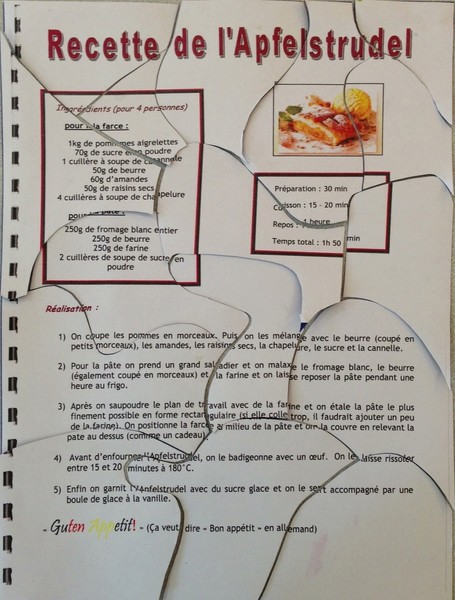 Recette de l'Apfelstrudel
Ingrédients (pour 4 personnes)
pour la farce :
1kg de pommes aigrelettes
70g de sucre en poudre
1 cuillère à soupe de cannelle
50g de beurre
60g d'amandes
50g de raisins secs
4 cuillères à soupe de chapelure
pour la pâte :
250g de fromage blanc entier
250g de beurre
250g de farine
2 cuillères de soupe de sucre en
poudre
Préparation : 30 min
Cuisson : 15 - 20 min
Repos : 1 heure
Temps total : 1h 50 min
Réalisation :
1) On coupe les pommes en morceaux. Puis on les mélange avec le beurre (coupé en
petits morceaux), les amandes, les raisins secs, la chapelure, le sucre et la cannelle.
2) Pour la pâte on prend un grand saladier et on malaxe le fromage blanc, le beurre
(également coupé en morceaux) et la farine et on laisse reposer la pâte pendant une
heure au frigo.
3) Après on saupoudre le plan de travail avec de la farine et on étale la pâte le plus
finement possible en forme rectangulaire (si elle colle trop, il faudrait ajouter un peu
de la farine). On positionne la farce au milieu de la pâte et on la couvre en relevant la
pate au dessus (comme un cadeau).
4) Avant d'enfourner l'Apfelstrudel, on le badigeonne avec un œuf. On le laisse rissoler
entre 15 et 20 minutes à 180°C.
5) Enfin on garnit l'Apfelstrudel avec du sucre glace et on le sert accompagné par une
boule de glace à la vanille.
- Guten Appetit! - (Ça veut dire « Bon appétit » en allemand)